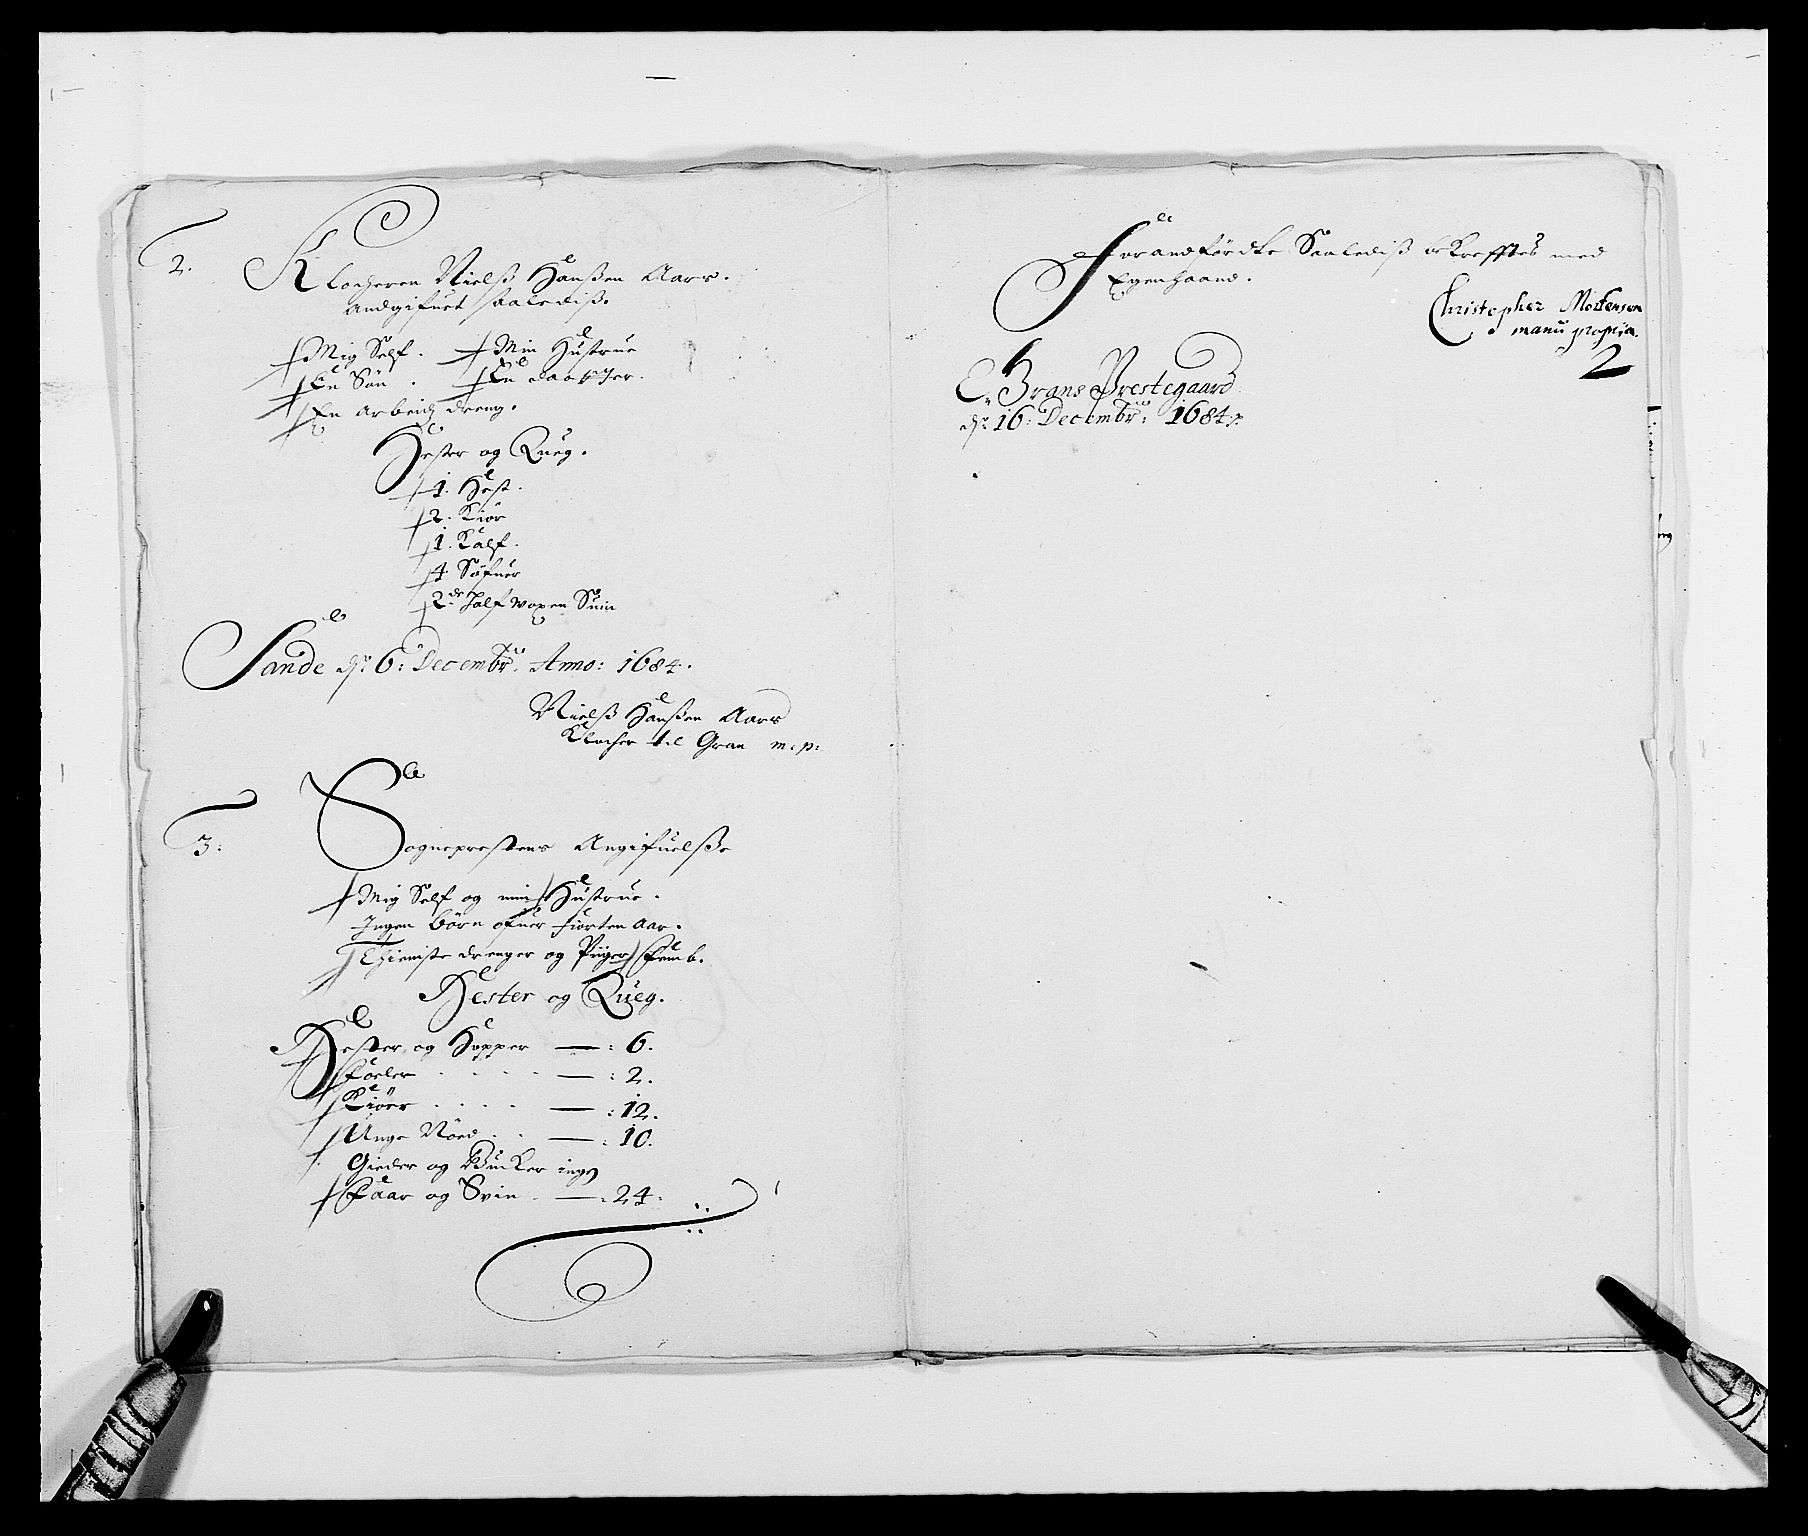 2.
Klocheren Nielß Hanßen Aars.
Andgifuet saalediß.
Mig Self. Min Hustrue
En Søn. En daatter.
En Arbeids dreng.
Hester og Queg.
1. Hest.
2. Kiør
1. Kalf.
4 Søfuer
2de Half woxen Suin
Sande dn 6: Decembr. Anno: 1684.
Nielß Hanßen Aars
Klocher til Gran m: p:
3:
Sogneprestens Angifuelße
Mig Self og min Hustrue.
Ingen børn ofuer fiorten Aar.
Thieniste drenger og Piiger Femb.
Hester og Queg.
Hester og Hopper — : 6.
Foeler — : 2.
Kiöer — : 12.
Unge Nöed — : 10.
Gieder og Bucker ingen
Faar og Svin — : 24.
Forandførdte Saalediß bekrefftes med
Egen haand.
Christopher Mortensen
manu propria.
2
Grans Prestegaard
dn 16: Decembr: 1684.